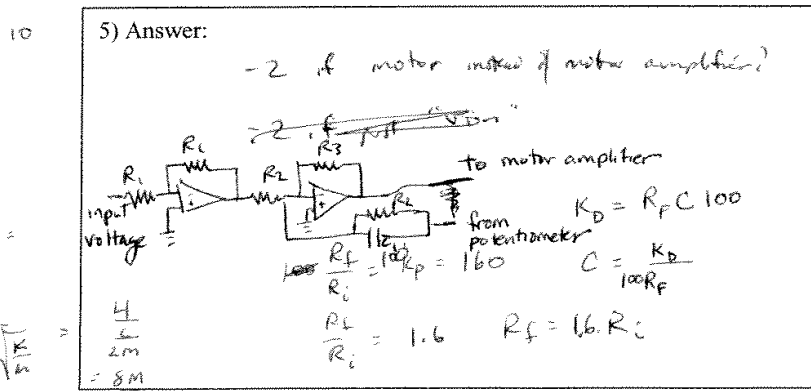 10
5) Answer:
-2 if motor instead of motor amplifier?
-2 if not
R1
R1
R2
R3
to motor amplifier
input
voltage
R2
from
potentiometer
K_D = R_F C 100
R_f/R_i = K_P = 160
C = K_D/100R_F
R_f/R_i = 1.6
R_f = 1.6 R_i
=
4
2M
= 8M
√K/m